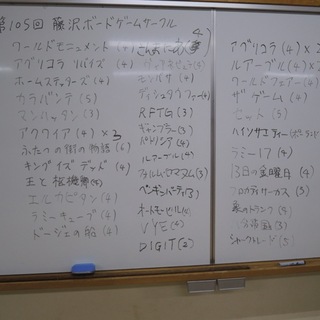 第105回 藤沢ボードゲームサークル
ワールドモニュメント (4)
アグリコラ リバイズ (4)
ホームステッダーズ (4)
カラバンデ (5)
マンハッタン (3)
アクワイア (4) × 3
ふたつの街の物語 (6)
キングイズデッド (4)
王と枢機卿 (4)
エルカピタン (4)
ラミーキューブ (4)
ドージェの船 (4)
4
モンバサ (4)
RFTG (3)
ギャンブラー (3)
パトリシア (4)
ルアーブル (4)
フォルム・ロマヌム (3)
ペンギンパーティ (3)
オートモービル (4)
VYE (4)
DIGIT (2)
アグリコラ (4) ×
ルアーブル (4)
ワールドフェアー (4)
ザ ゲーム (4)
セット (5)
ハイソサエティ
ラミー17 (4)
13日の金曜日 (4)
フロカティサーカス (5)
象のトランク (4)
シャークトレード (5)